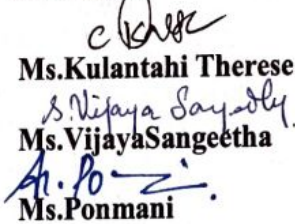 Ms.Kulantahi Therese
S.Vijaya
Ms.VijayaSangeetha
Ms.Ponmani